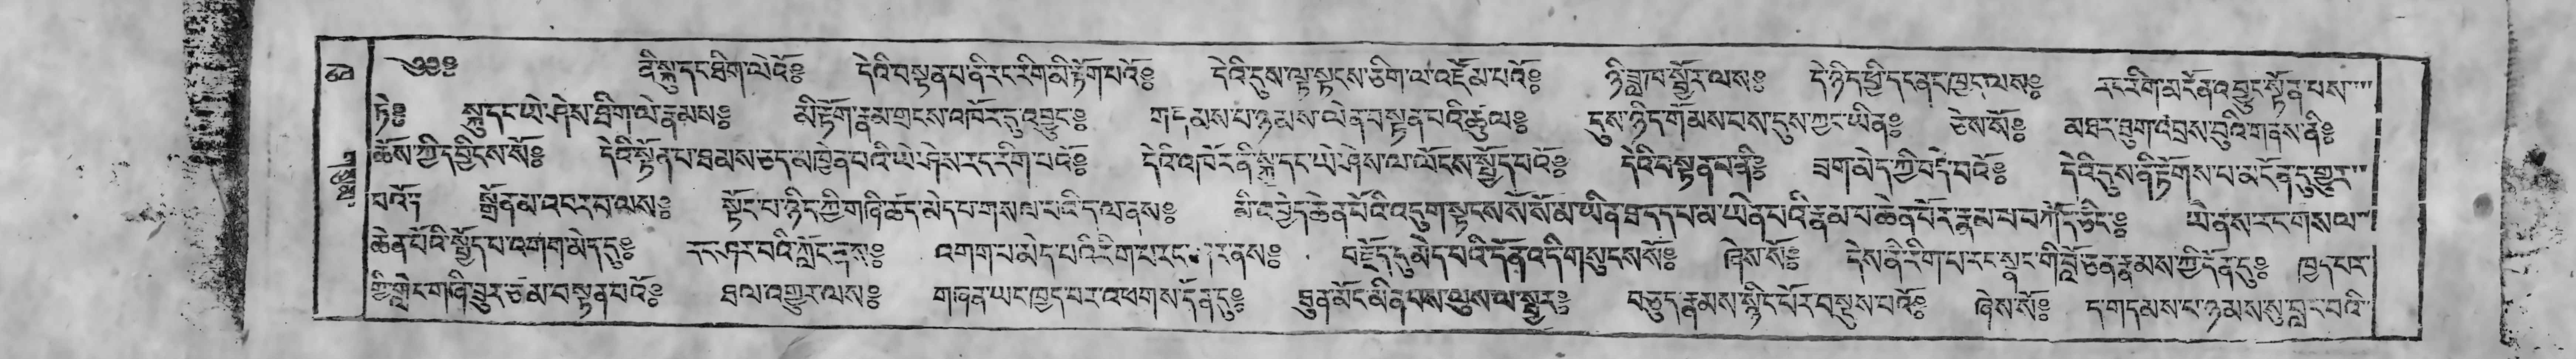 ༄༅༔ ནི་སྐུ་དང་ཐིག་ལེའོ༔ དེའི་བསྟན་པ་ནི་རང་རིག་མི་རྟོག་པའོ༔ དེའི་དུས་ལྟ་སྟངས་ཅིག་ལ་འཛོམ་པའོ༔ ཉི་ཟླ་ཁ་སྦྱོར་ལས༔ དེ་ཉིད་ཕྱི་དང་ནང་ཁྱད་ལས༔ རང་རིག་མངོན་འབྱུང་སྟོན་པས
ཏེ༔ སྐུ་དང་ཡེ་ཤེས་ཐིག་ལེ་རྣམས༔ མི་རྟོག་རྣམ་གྲངས་འཁོར་དུ་འབྱུང་༔ གདམས་པ་ཉམས་ལེན་བསྟན་པའི་ཚུལ༔ དུས་ཉིད་གོམས་པས་དུས་ཀྱང་ཡིན༔ ཅེས་སོ༔ མཐར་ཐུག་འབྲས་བུའི་གནས་ནི༔
ཆོས་ཀྱི་དབྱིངས་སོ༔ དེའི་སྟོན་པ་ཐམས་ཅད་མཁྱེན་པའི་ཡེ་ཤེས་རང་རིག་པའོ༔ དེའི་འཁོར་ནི་སྐུ་དང་ཡེ་ཤེས་ལ་ལོངས་སྤྱོད་པའོ༔ དེའི་བསྟན་པ་ནི༔ ཟག་མེད་ཀྱི་བདེ་བའོ༔ དེའི་དུས་ནི་རྟོགས་པ་མངོན་དུ་གྱུར
པའོ༔ སྒྲོན་མ་འབར་བ་ལས༔ སྟོང་པ་ཉིད་ཀྱི་གཞི་ཚད་མེད་པ་གསལ་བ་ ལ་ནས༔ མི་འབྱེད་ཆེན་པོའི་འདུག་སྟངས་སོ་སོ་མ་ཡིན་ཐ་དད་པ་མ་ཡིན་པའི་རྣམ་པ་ཆེན་པོར་རྣམ་པ་བཀོད་ཅིང་༔ ཡེ་ནས་རང་གསལ
ཆེན་པོའི་སྤྱོད་པ་འགག་མེད་དུ༔ རང་ཤར་བའི་ཀློང་ནས༔ འགག་པ་མེད་པའི་རིག་པ་རང་ ནས༔ བརྗོད་དུ་མེད་པའི་དོན་འདི་གསུངས་སོ༔ ཞེས་སོ༔ དེས་ནི་རིག་པ་རང་སྣང་གི་བློ་ཅན་རྣམས་ཀྱི་དོན་དུ༔ ཁྱད་པར
གྱི་གླེང་གཞི་ཟུར་ཙམ་བསྟན་པའོ༔ ཐལ་འགྱུར་ལས༔ གཞན་ཡང་ཁྱད་པར་འཕགས་དོན་དུ༔ ཐུན་མོང་མིན་པས་ལུས་ལ་སྦྱར༔ བཅུད་རྣམས་སྙིང་པོར་བསྡུས་པའོ༔ ཞེས་སོ༔ ད་གདམས་ངག་ཉམས་སུ་བླང་བའི